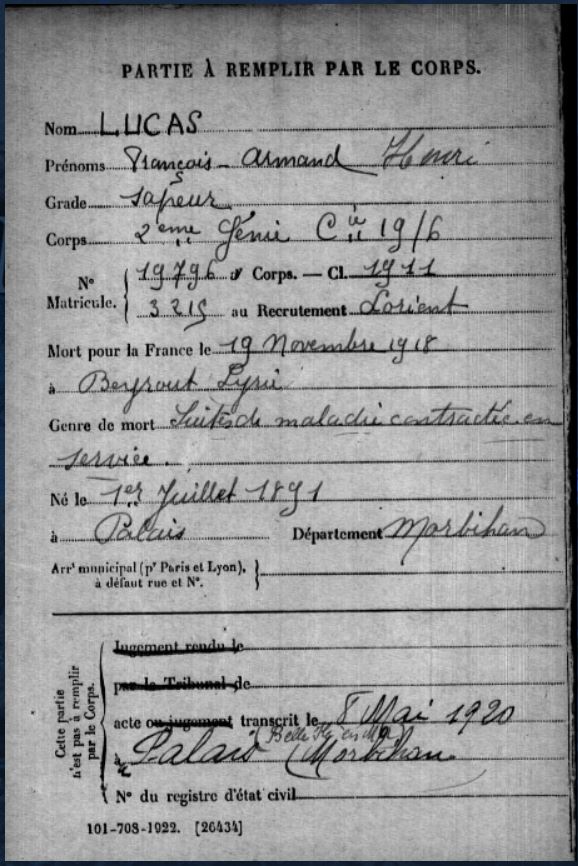 PARTIE À REMPLIR PAR LE CORPS.
Nom LUCAS
Prénoms François - Armand Henri
Grade Sapeur
Corps 2eme Génie Cie 19/6
N° Matricule. { 19796 au Corps. — Cl. 1911
3215 au Recrutement Lorient
Mort pour la France le 19 Novembre 1918
à Beyrout Syrie
Genre de mort Suites de maladie contractée en
service.
Né le 1er Juillet 1891
à Palais Département Morbihan
Arrt municipal (pr Paris et Lyon),
à défaut rue et N°.
Cette partie n'est pas à remplir par le Corps.
Jugement rendu le
par le Tribunal de
acte ou jugement transcrit le 8 Mai 1920
à Palais (Belle Ile en Mer)
(Morbihan
N° du registre d'état civil
101-708-1922. [26434]